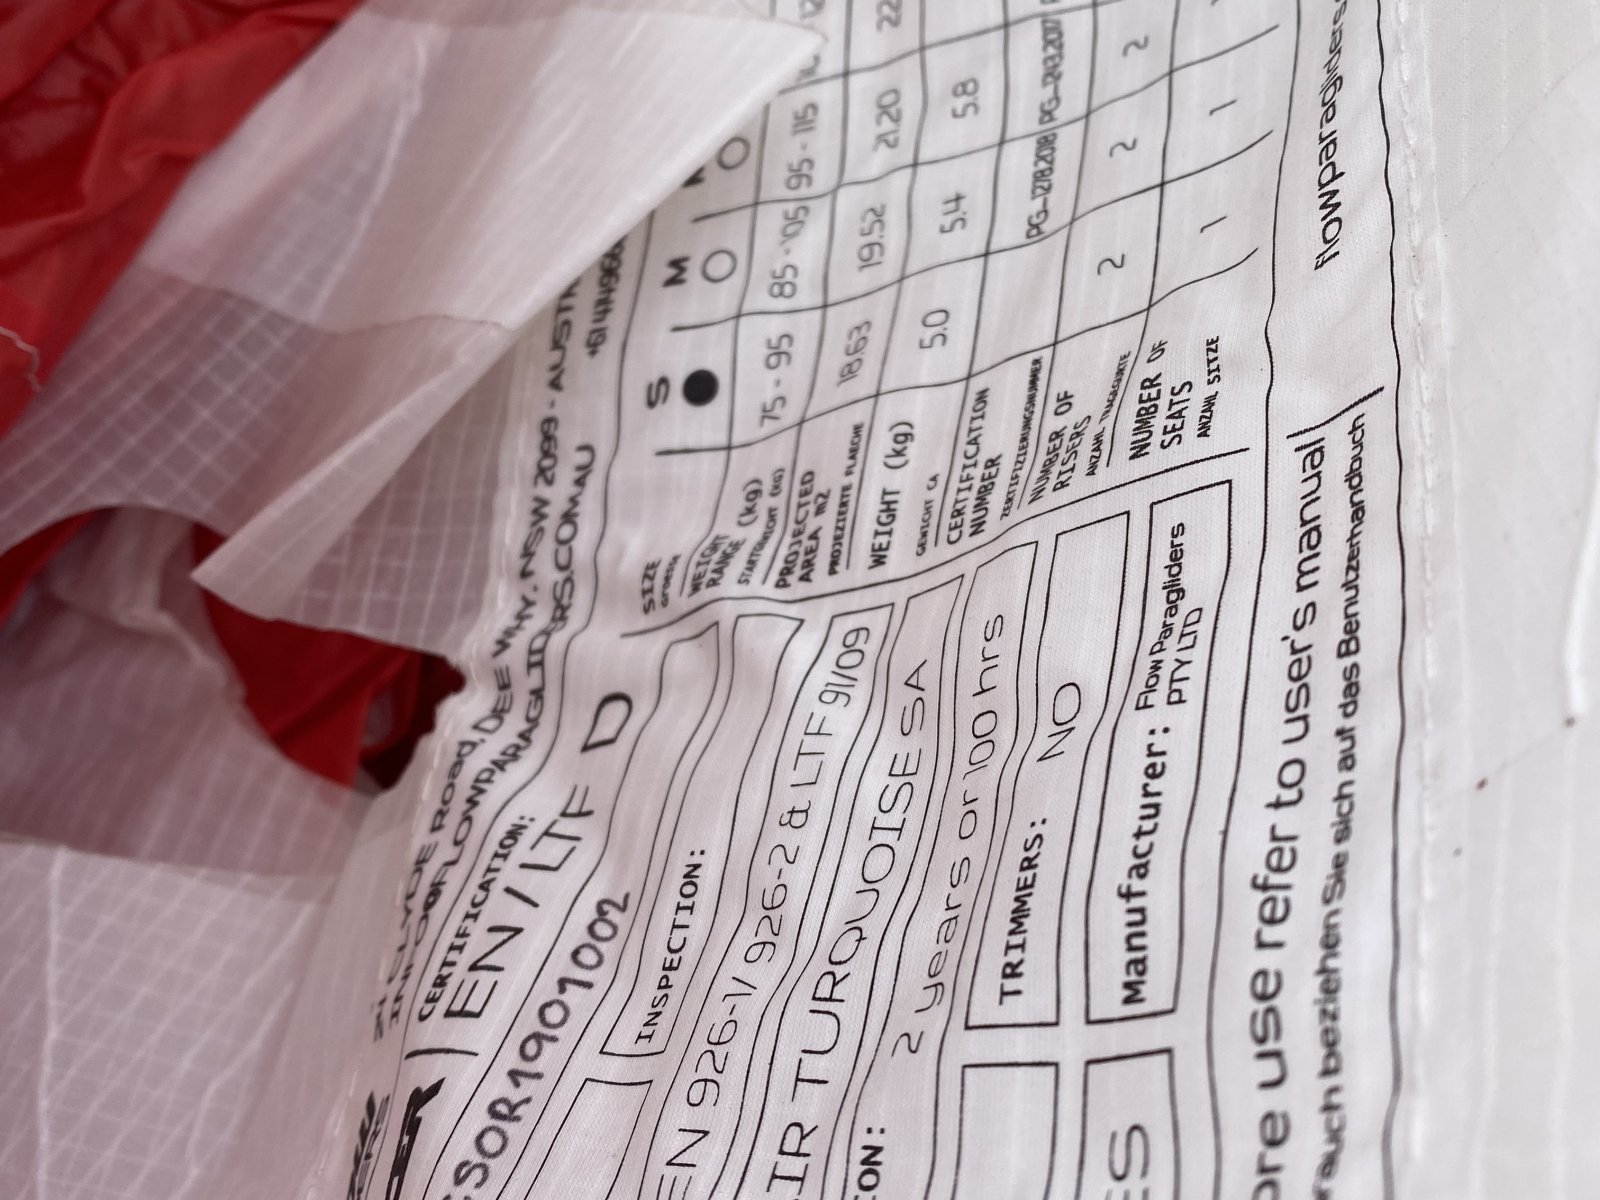 CLYDE ROAD, DEE WHY, NSW 2099 - AUSTRA
FLOWPARAGLIDERS.COM.AU
CERTIFICATION:
EN / LTF D
SOR1901002
INSPECTION:
EN 926-1/ 926-2 & LTF 91/09
IR TURQUOISE SA
ION:
2 years or 100 hrs
TRIMMERS:
NO
ES
Manufacturer: Flow Paragliders
PTY LTD
SIZE
S M
WEIGHT RANGE (kg)
STARTGEWICHT (KG)
75 - 95 85 - 105 95 - 115
PROJECTED AREA m2
PROJEZIERTE FLAECHE
18.63 19.52 21.20 22
WEIGHT (kg)
GEWICHT CA
5.0 5.4 5.8
CERTIFICATION NUMBER
ZERTIFIZIERUNGSNUMMER
PG-1278.2018 PG-1243.2017
NUMBER OF RISERS
ANZAHL TRAGEGURTE
2 2 2
NUMBER OF SEATS
ANZAHL SITZE
1 1
ore use refer to user's manual
auch beziehen Sie sich auf das Benutzerhandbuch
flowparagliders